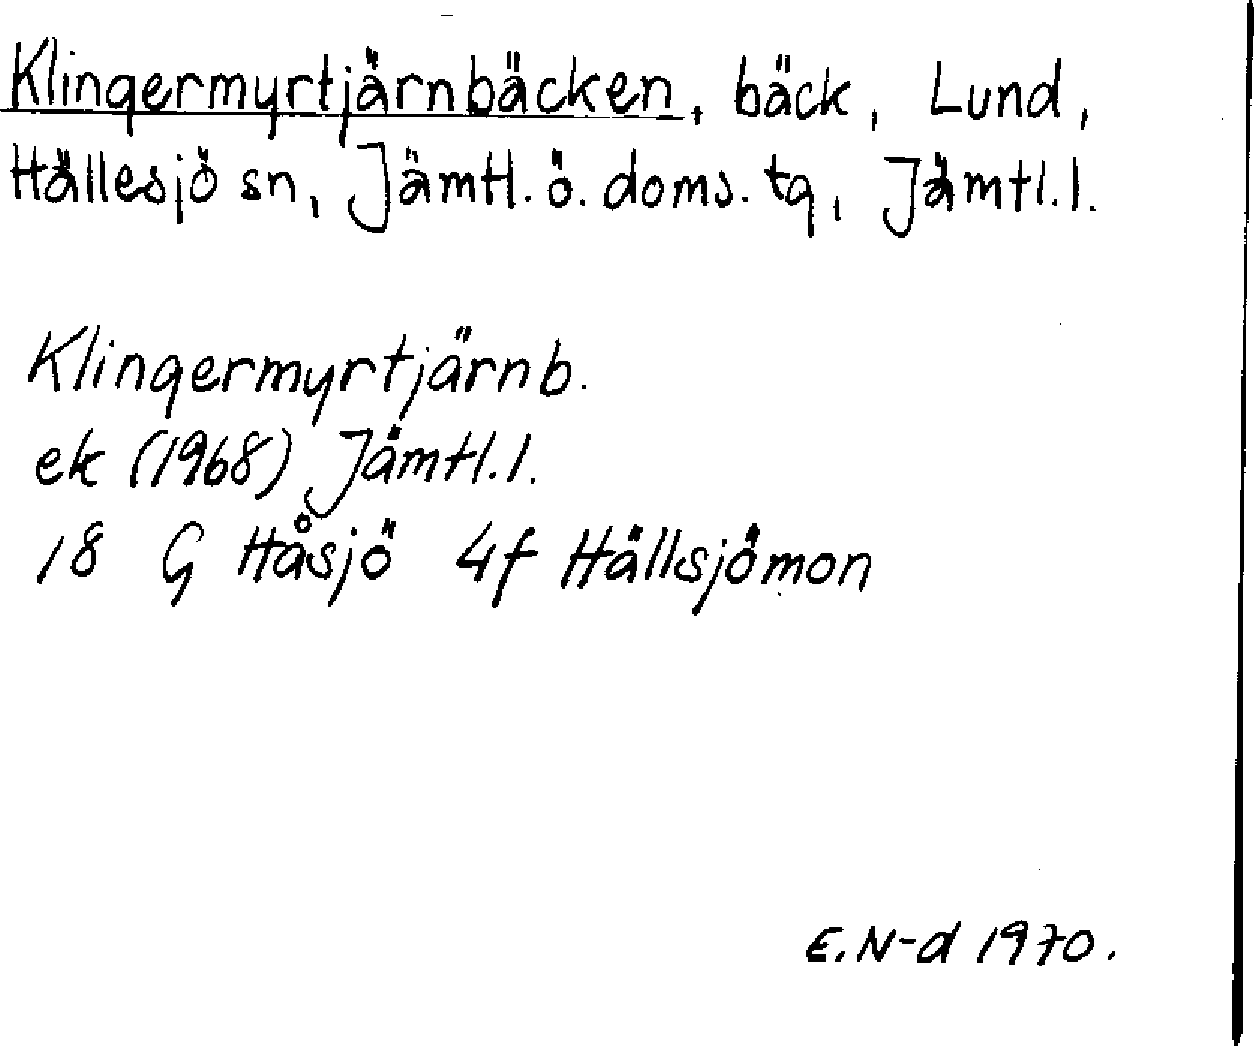 Klingermyrtjärnbäcken, bäck, Lund,
Hällesjö sn, Jämtl. ö. doms. tg, Jämtl. l.
Klingermyrtjärnb.
ek (1968) Jämtl. l.
18 G Håsjö 4f Hällsjömon
E. N-d 1970.